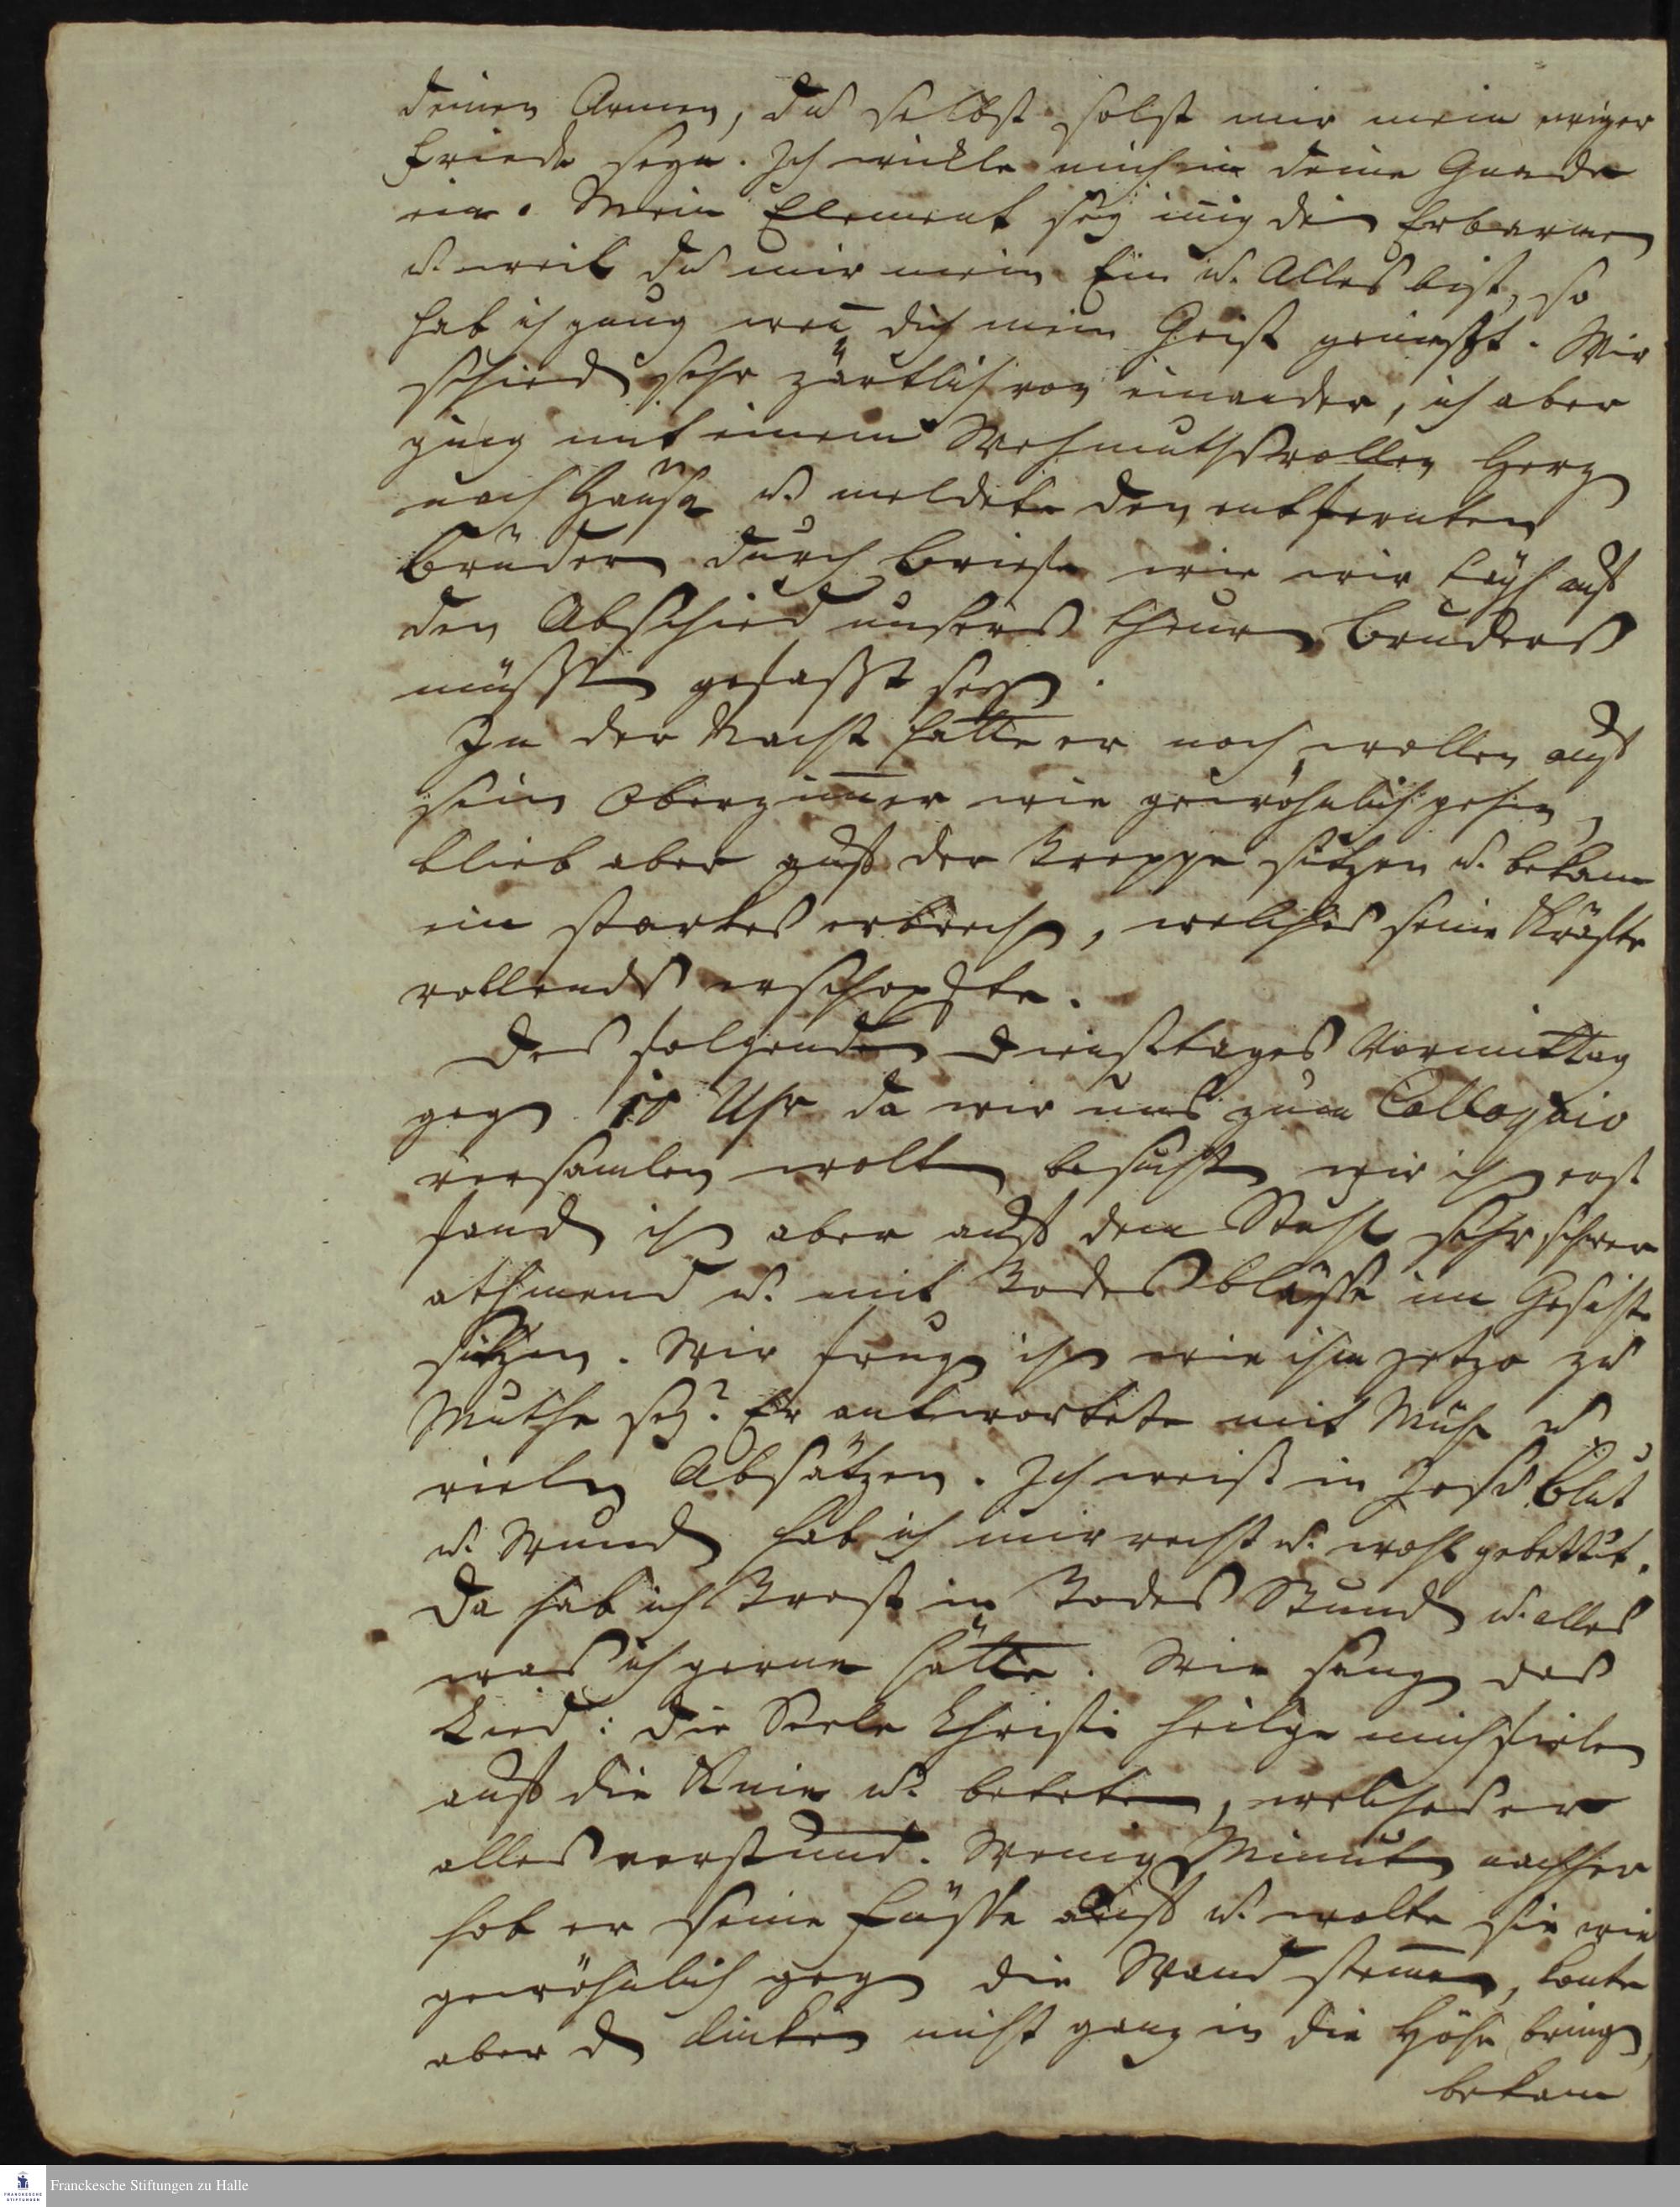 deinen Armen, du selbst solst mir mein ewiger
Friede seyn. Ich wickle mich in deine Gnade
ein. Mein Element sey einig dein Erbarmen
u. weil du mir mein Ein u. Alles bist, so
hab ich gnug weñ dich mein Geist geniesst. Wir
schieden sehr zärtlich von einander, ich aber
ging mit einem Wehmuthsvollen Herzen
nach Hause u. meldete den entfernten
Brüdern durch Briefe wie wir auf
den Abschied unsers theuren Bruders
müssten gefasst seyn.
In der Nacht hatte er noch wollen auf
sein Oberzim̄er wie gewöhnlich gehen,
blieb aber auf der Treppe sitzen u. bekam
ein starkes erbrechen, welches seine Kräfte
vollends erschopfte.
Des folgenden Diensttages Vormittag
gegen 10 Uhr da wir uns zum Colloquio
versamlen wolten besuchten wir ihn erst
fanden ihn aber auf dem Stuhl sehr schwer
athmend u. mit Todes blässe im Gesichte
sitzen. Wir frugen ihn wie ihm jetzo zu
Muthe sey? Er antwortete mit Mühe u.
vielen Absätzen. Ich weiß in Jesu Blut
u. Wunden hab ich mir recht u. wohl gebettet.
Da hab ich Trost in Todes Stunden u. alles
was ich gerne hätte. Wir sungen das
Lied: die Seele Christi heilge mich fielen
auf die Knie u. beteten, welches er
alles verstund. Wenig Minuten nachher
hob er seine Füsse auf u. wolte sie wie
gewöhnlich gegen die Wand stem̄en, konte
aber den linken nicht ganz in die Höhe bringen,
bekam
Franckesche Stiftungen zu Halle